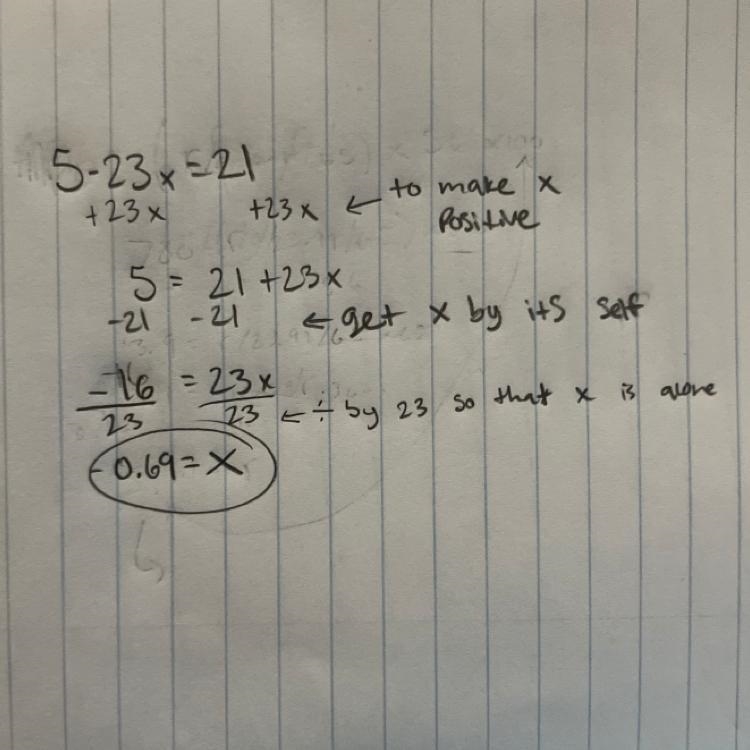 5-23x=21
+23x +23x ← to make x
positive
5 = 21 +23x
-21 -21 ← get x by its self
-16 = 23x
23 23 ← ÷ by 23 so that x is alone
-0.69=x